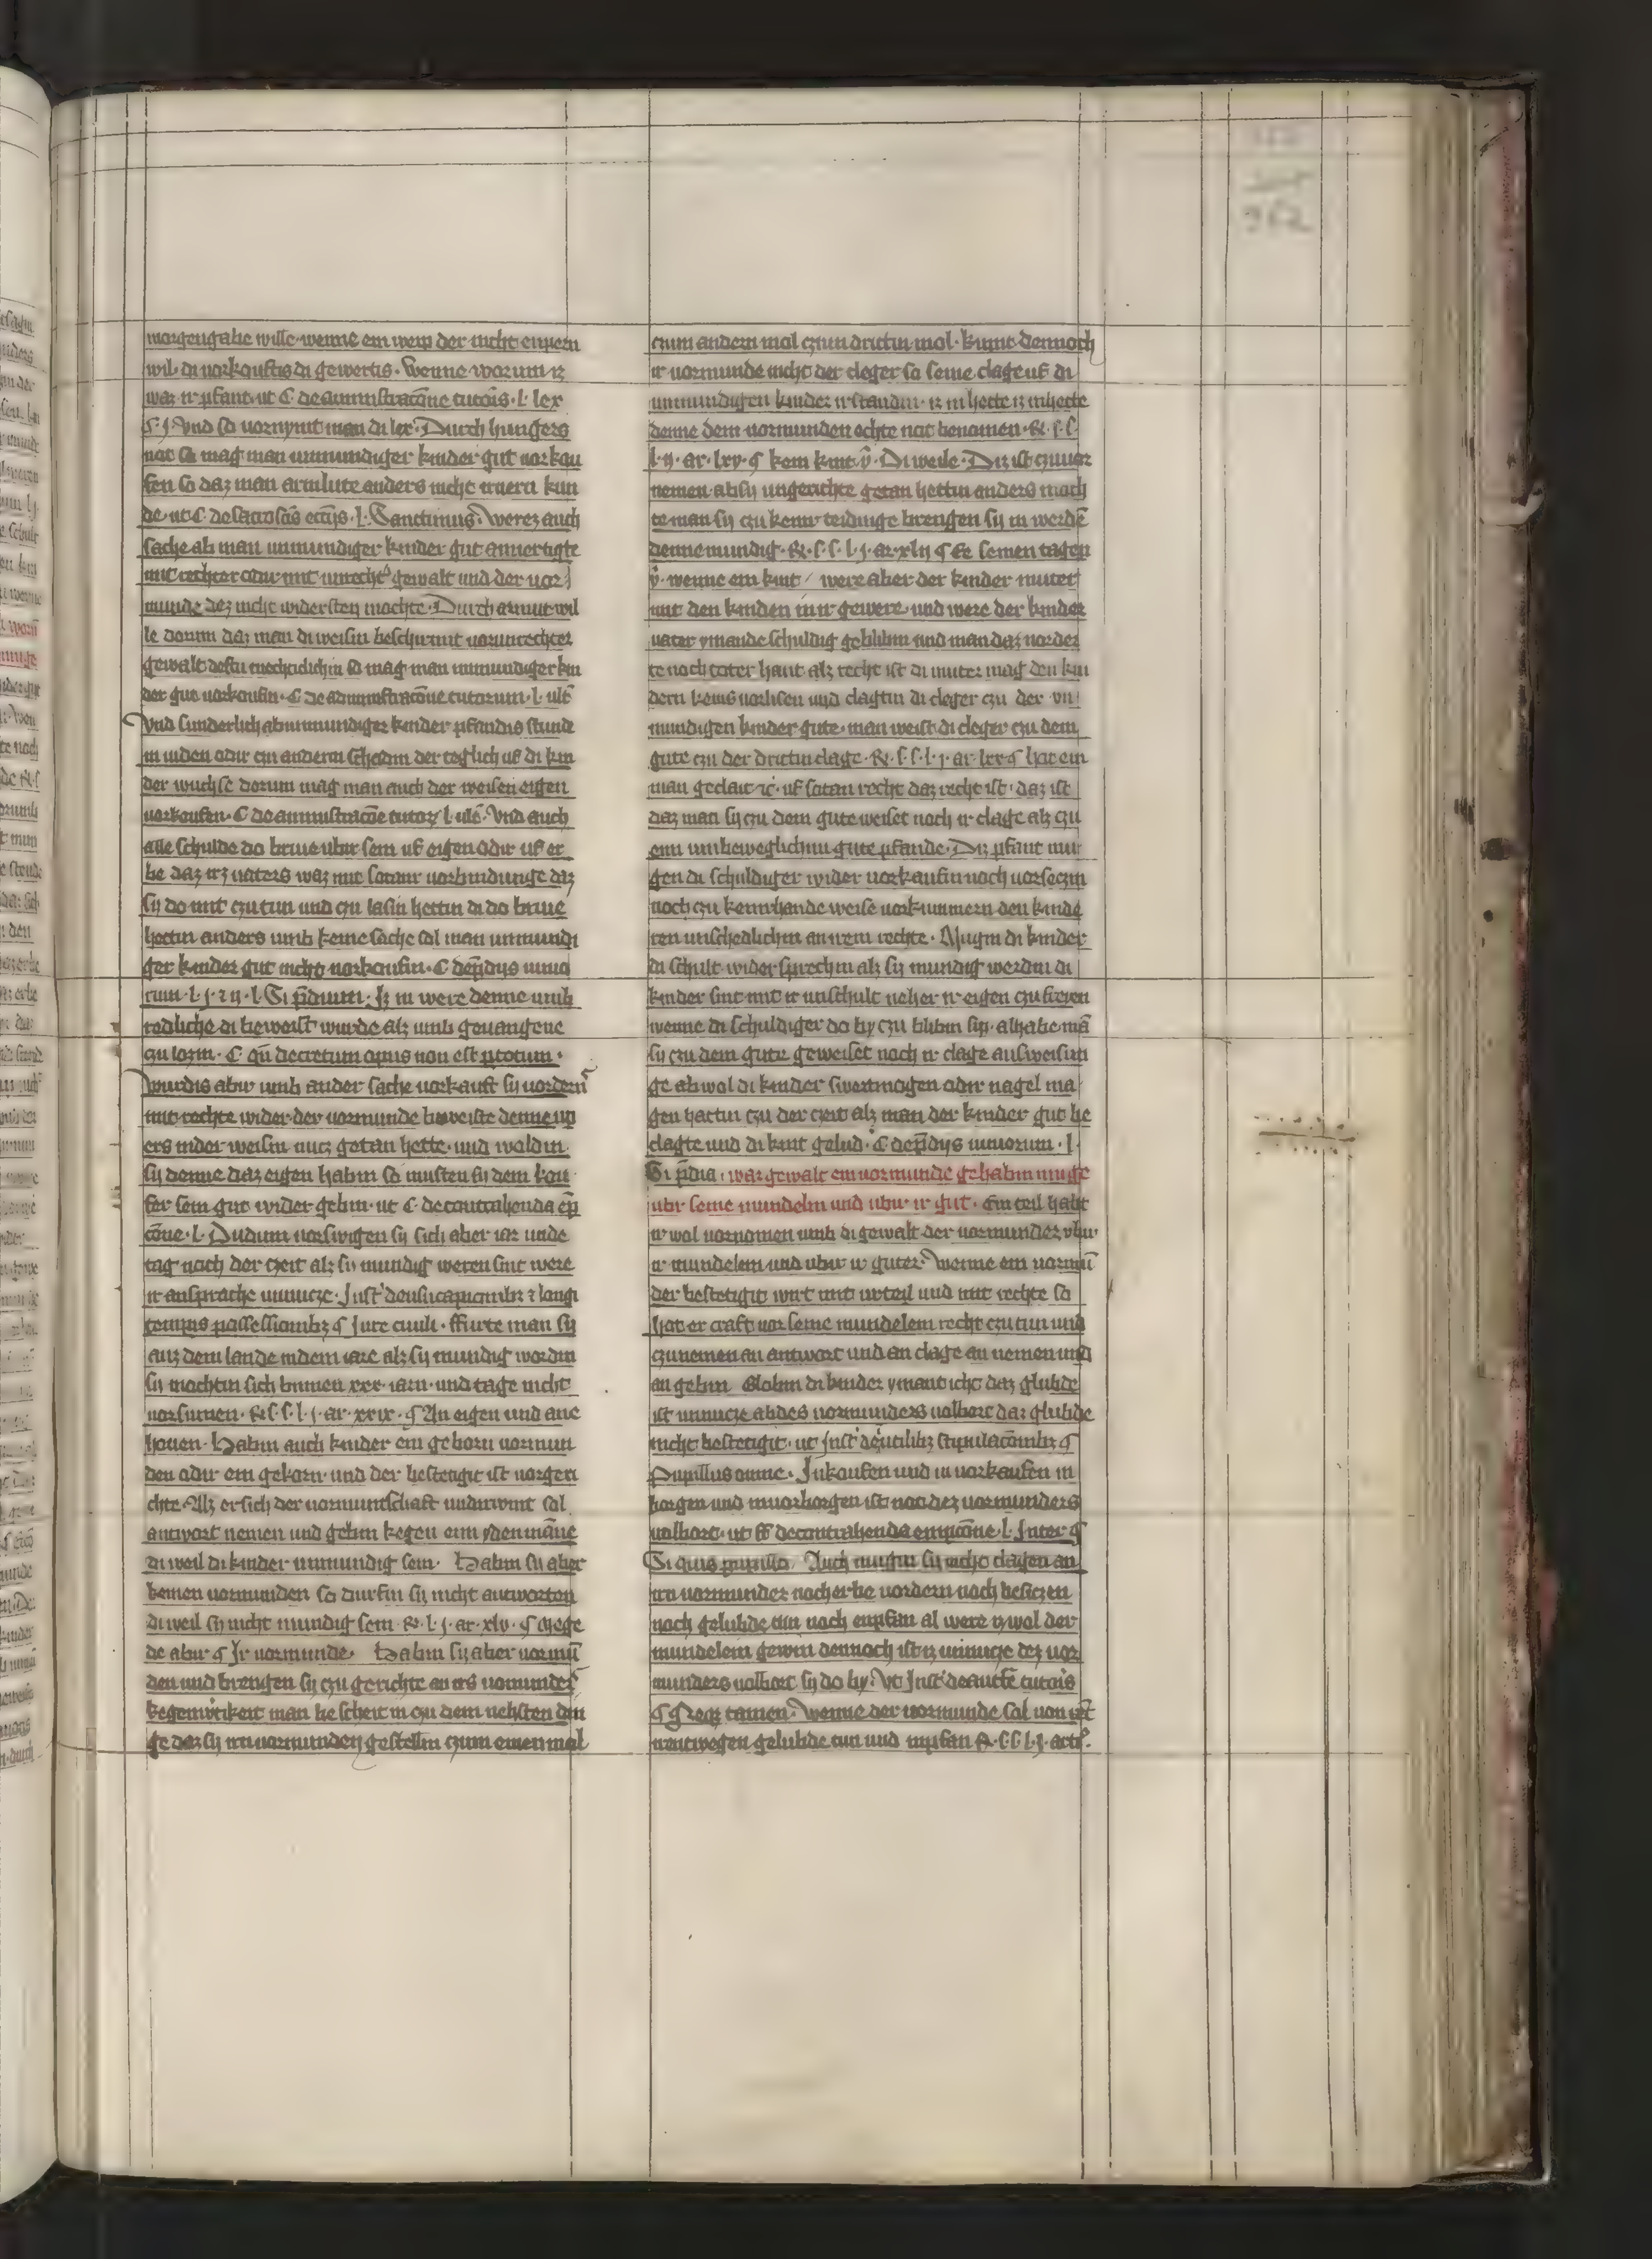 morgengabe wille wenne em weip der nicht enpern
wil di vorkouftis di gewertis. Wenne worum iz
waz ir pfant. ut C de amministracōne tutor̄. l. lex
§. j. Vnd so vornymt man di lex. Durch hungers
not so mag man unmundiger kinder gut vorkou
fen so daz man armlute anders nicht irnern kun
de. ut C. de sacrosc̄is ecc̄ijs. l. Sanctimus. Werez auch
sache ab man unmundiger kinder gut anuertigte
mit rechter odir mit unrecht' gewalt und der vor
munde dez nicht widersten mochte. Durch armut wil
le dorum daz man di weisin beschirmit vor unrechter
gewalt so mag man unmundiger kin
der gut vorkoufin. C de administracōne tutorum. l. ult̄
Vnd sunderlich ab unmundiger kinder pfandis stunde
in iuden odir czu anderin schadin der teglich uf di kin
der wuchse dorum mag man auch der weisen eigen
vorkoufen. C de amministracōne tutor. l. ult̄. Vnd auch
alle schulde do briue ubir sein uf eigen odir uf er
be daz irz vaters waz mit sotanir vorbindunge daz
sy do mit czu tun und czu lasin hettin di do briue
hettin anders umb keine sache sal man unmundi
ger kinder gut nicht vorkoufin. C de p̄dijs mino
rum. l. j. z ij. l. Si p̄dium. Iz in were denne umb
redliche di beweist wurde alz umb geuangene
czu lozin. C. qn̄ decretum opus non est p̄torum.
Wurdis abir umb ander sache vorkauft sy vordern
mit rechte wider der vormunde beweiste denne
ers in der weisin nucz getan hette. und woldin
sy denne daz eigen habin so musten sy dem kou
fer sein gut wider gebin. ut C. de contrahenda ēp
cōne. l. Dudum vorswigen sy sich aber iar unde
tag noch der czeit alz sy mundig weren sint were
ir ansprache unnucze. Inst' de usucapionibz z longi
temporis possessionibz § Jure ciuili. ffurte man sy
auz dem lande in dem iare alz sy mundig wordin
sy mochtin sich binnen xxx iarn. und tage nicht
vorsumen. R. s. s. l. j. ar. xxix. § An eigen und ane
houen. Habin auch kinder ein geborn vormun
den odir ein gekorn und der bestetigit ist vor geri
chte. Alz er sich der vormuntschaft undirwint sal
antwort nemen und gebin kegen eim idenmāne
di weil di kinder unmundig sein. Habin sy aber
keinen vormunden so durfin sy nicht antworten
di weil sy nicht mundig sein. R. l. j. ar. xlv. § Mege
de abir § Ir vormunde. Habin sy aber vormū
den und brengen sy czu gerichte an irs vormunder
kegenwirtikeit man bescheit in czu dem nehsten din
ge daz sy irn vormunden gestellin czum einen mol
czum andern mol czum drittin mol. kumt dennoch
ir vormunde nicht der cleger so seine clage uf di
unmundigen kinder irstandin. iz in hette in hette
denne dem vormunden echte not benomen. R. s. s.
l. ij. ar. lxv. § kein kint v̄. Di weile. Diz ist czu vor
nemen ab sy ungerichte getan hettin anders moch
te man sy czu keinr teidinge brengen sy in werdē
denne mundig. R. s. s. l. j. ar. xlij § Er seinen tagen
v̄. wenne ein kint / were aber der kinder muter
mit den kinden in ir gewere. und were der kinder
vater ymande schuldig geblibin und man daz vorder
te noch toter hant alz recht ist di muter mag den kin
dern keins vorlisen und clagtin di cleger czu der un
mundigen kinder gute. man weist di cleger czu dem
gute czu der drittin clage. R. s. s. l. j. ar. lxx § hat ein
man geclait ꝛc. uf sotan recht daz recht ist. daz ist
daz man sy czu dem gute weiset noch ir clage alz czu
eim unbeweglichim gute pfande. Diz pfant mu
gen di schuldiger wider vorkaufin noch vorseczin
noch czu keinrhande weise vorkummern den kinde
ren unschedlichin an irem rechte. Mugin di kinder
di schult widersprechin alz sy mundig werdin di
kinder sint mit ir unschult neher ir eigen czu freyen
wenne di schuldiger do by czu blibin sin. al habe mā
sy czu dem gute geweiset noch ir clage
ge ab wol di kinder swertmogen odir nagel ma
gen hattin czu der czeit alz man der kinder gut be
clagte und di kint gelud. C de p̄dijs minorum. l.
Si p̄dia. waz gewalt ein vormunde gehabin muge
ubir seine mundelin und ubir ir gut. Ein teil habt
ir wol vornomen umb di gewalt der vormunder ubir
ir mundelein und ubir ir guter. Wenne ein vormū
der bestetigit wirt mit urteil und mit rechte so
hat er craft vor seine mundelein recht czu tun und
czu nemen an antwort und an clage an nemen und
an gebin. Globin di kinder ymant icht daz glubde
ist unnucze ab des vormunders volbort daz glubde
nicht bestetigit. ut Inst' de inutilibz stipulacōnibz §
Pupillus omne. In koufen und in vorkaufen in
borgen und in vorborgen ist not dez vormunders
volbort. ut ff de contrahenda empcōne. l. Inter §
Si quis pupillo. Auch mugin sy nicht clagen an
irn vormunder noch erbe vordern noch besiczen
noch gelubde tun noch enpfan al were iz wol der
mundelein gewin dennoch ist iz unnucze dez vor
munders volbort sy do by. Vt Inst' de auct̄e tutor̄is
§ Neqz tamen. Wenne der vormunde sal von irt
wenwegen gelubde tun und inpfan R. s. s. l. j.